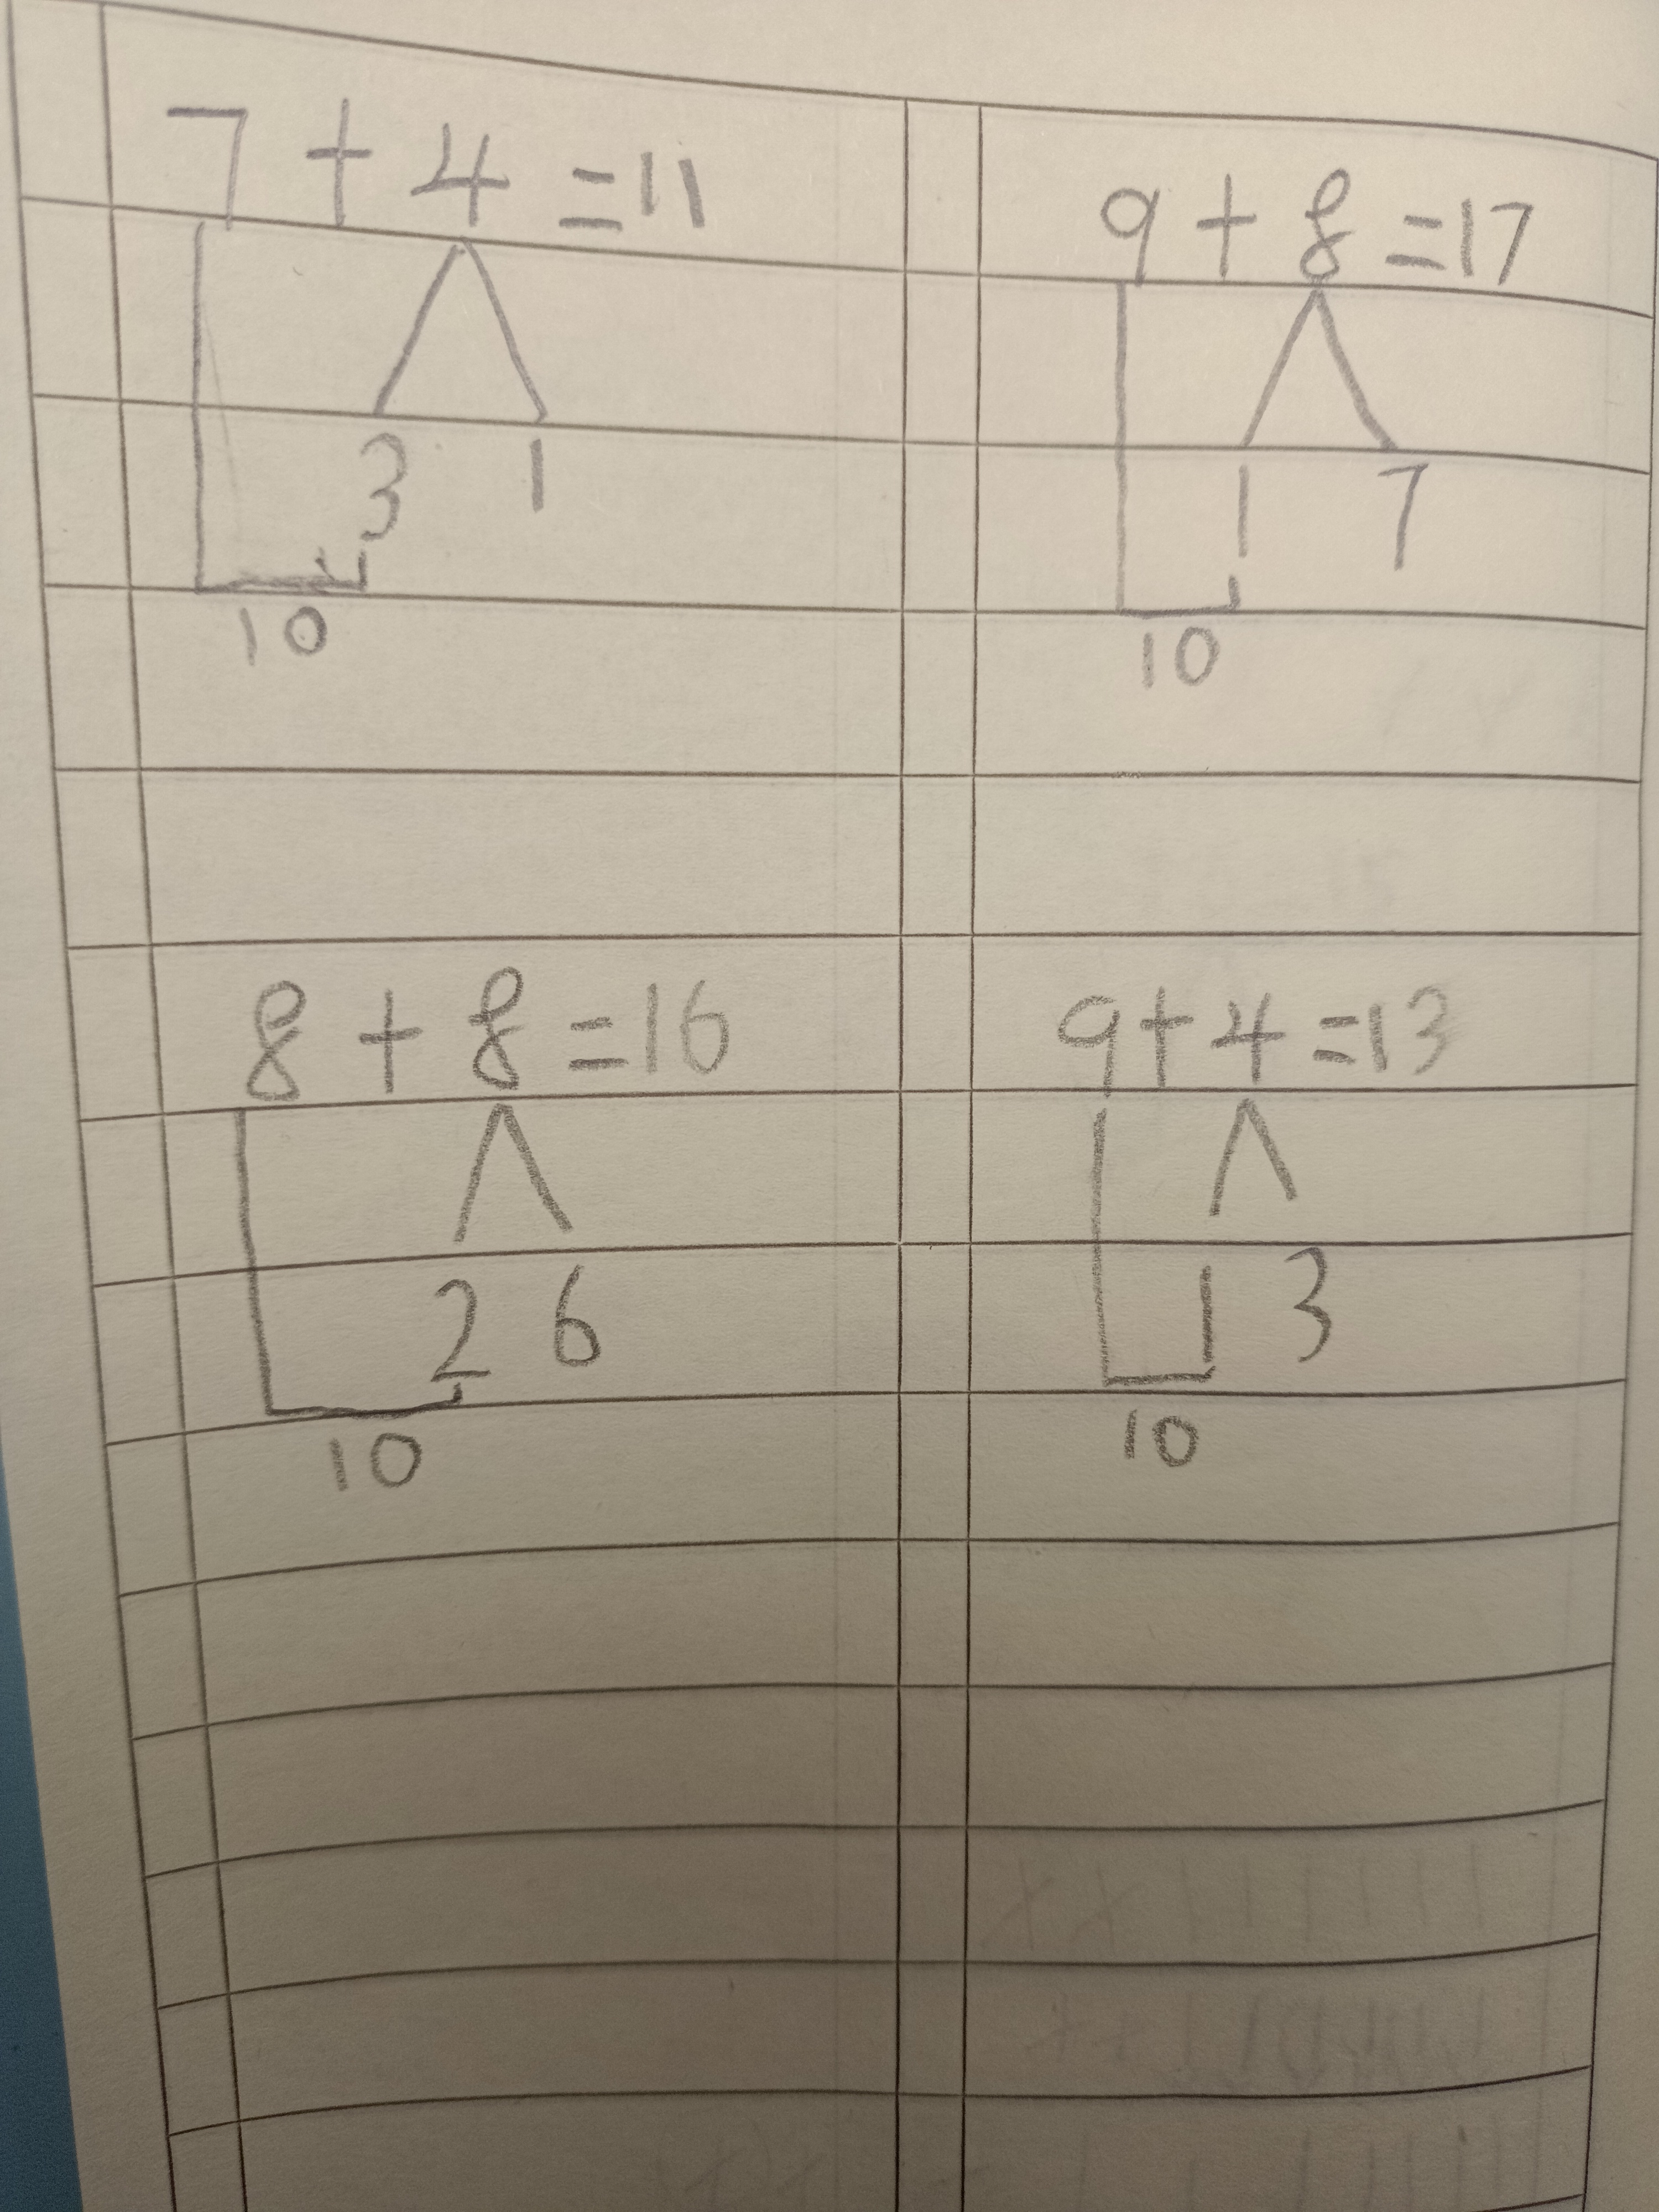 7 + 4 = 11
3 1
10
9 + 8 = 17
1 7
10
8 + 8 = 16
2 6
10
9 + 4 = 13
1 3
10